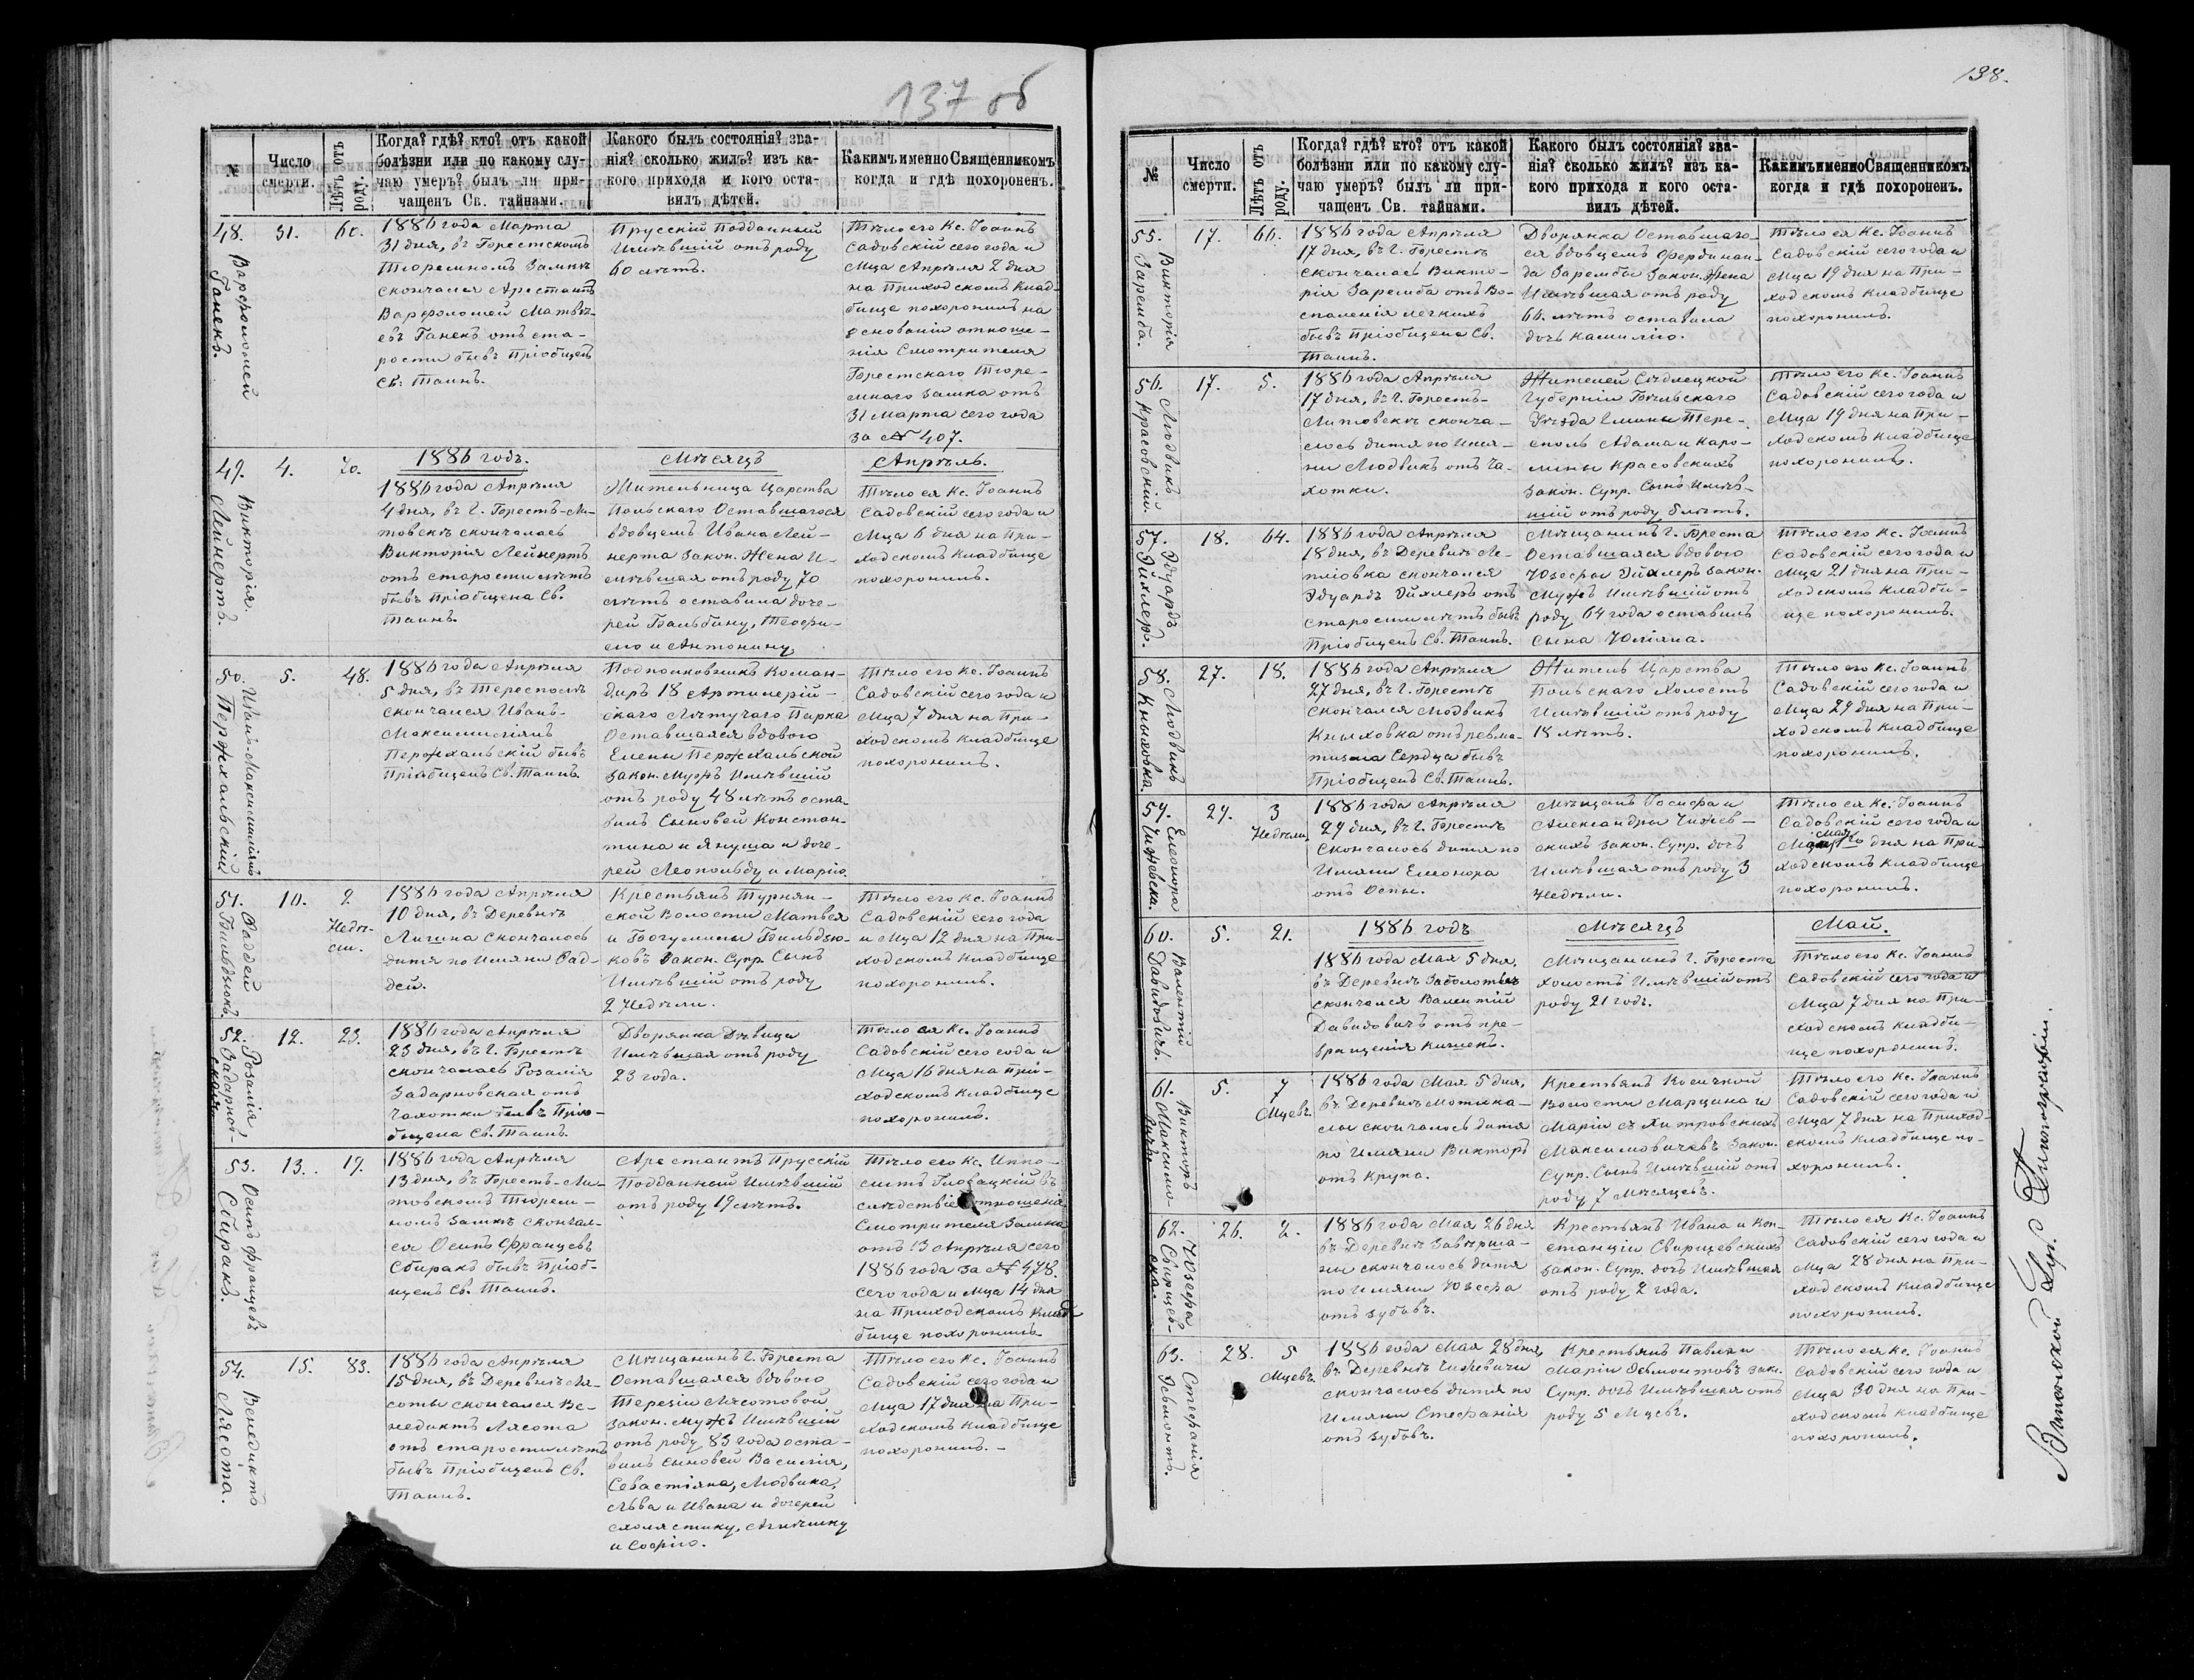 137 об
№
Число
смерти.
Лѣтъ отъ
роду.
Когда? гдѣ? кто? отъ какой
болѣзни или по какому слу-
чаю умеръ? былъ ли при-
чащенъ Св. тайнами.
Какого былъ состоянія? зва-
нія? сколько жилъ? изъ ка-
кого прихода и кого оста-
вилъ дѣтей.
Какимъ именно Священникомъ
когда и гдѣ похороненъ.
48.
Варфоломей
Ганекъ.
31.
60.
1886 года Марта
31 дня, въ Брестскомъ
Тюремномъ Замкѣ
скончался Арестантъ
Варфоломей Матвѣ-
евъ Ганекъ отъ ста-
рости бывъ Пріобщенъ
Св. Таинъ.
Прусскій Подданный
Имѣвшій отъ роду
60 лѣтъ.
Тѣло его Кс. Іоаннъ
Садовскій сего года и
Мца Апрѣля 2 дня
на Приходскомъ Клад-
бище похоронилъ на
основаніи отноше-
нія Смотрителя
Брестскаго Тюре-
мнаго замка отъ
31 Марта сего года
за № 407.
1886 годъ.
Мѣсяцъ
Апрѣль.
49.
Викторія
Лейнертъ.
4.
70.
1886 года Апрѣля
4 дня, въ г. Брестъ-Ли-
товскѣ скончалась
Викторія Лейнертъ
отъ старости лѣтъ
бывъ Пріобщена Св.
Таинъ.
Жительница Царства
Польскаго Оставшагося
вдовцемъ Ивана Лей-
нерта Закон. Жена И-
мѣвшая отъ роду 70
лѣтъ оставила доче-
рей Бальбину, Теофи-
лю и Антонину
Тѣло ея Кс. Іоаннъ
Садовскій сего года и
Мца 6 дня на При-
ходскомъ Кладбище
похоронилъ.
50.
Иванъ-Максимиліянъ
Пержхальскій
5.
48.
1886 года Апрѣля
5 дня, въ Тересполѣ
скончался Иванъ-
Максимиліянъ
Пержхальскій бывъ
Пріобщенъ Св. Таинъ.
Подполковникъ Коман-
диръ 18 Артилерій-
скаго Лѣтучаго Парка
Оставшаяся вдового
Елены Пержхальской
закон. Мужъ Имѣвшій
отъ роду 48 лѣтъ оста-
вилъ Сыновей Констан-
тина и Януша и доче-
рей Леопольду и Марію.
Тѣло его Кс. Іоаннъ
Садовскій сего года и
Мца 7 дня на При-
ходскомъ Кладбище
похоронилъ.
51.
Фаддей
Бильдзюкъ.
10.
2
Недѣ-
ли.
1886 года Апрѣля
10 дня, въ Деревнѣ
Лигина скончалось
дитя по Имяни Фад-
дей.
Крестьянъ Турнян-
ской Волости Матвея
и Богумилы Бильдзю-
ковъ Закон. Супр. Сынъ
Имѣвшій отъ роду
2 Недѣли.
Тѣло его Кс. Іоаннъ
Садовскій сего года
и Мца 12 дня на При-
ходскомъ Кладбище
похоронилъ.
52.
Розалія
Задарнов-
ская.
12.
23.
1886 года Апрѣля
23 дня, въ г. Брестѣ
скончалась Розалія
Задарновская отъ
Чахотки бывъ Пріо-
бщена Св. Таинъ.
Дворянка Дѣвица
Имѣвшая отъ роду
23 года.
Тѣло ея Кс. Іоаннъ
Садовскій сего года и
Мца 16 дня на При-
ходскомъ Кладбище
похоронилъ.
53.
Осипъ Францевъ
Сбиракъ.
13.
19.
1886 года Апрѣля
13 дня, въ Брестъ-Ли-
товскомъ Тюрем-
номъ Замкѣ скончал-
ся Осипъ Францевъ
Сбиракъ бывъ Пріоб-
щенъ Св. Таинъ.
Арестантъ Прусскій
Подданный Имѣвшій
отъ роду 19 лѣтъ.
Тѣло его Кс. Иппо-
литъ Гловацкій въ
слѣдствіе отношенія
Смотрителя Замка
отъ 13 Апрѣля сего
1886 года за № 478.
сего года и Мца 14 дня
на Приходскомъ Клад-
бище похоронилъ.
54.
Венедиктъ
Лясота.
15.
83.
1886 года Апрѣля
15 дня, въ Деревнѣ Ля-
соты скончался Ве-
недиктъ Лясота
отъ старости лѣтъ
бывъ Пріобщенъ Св.
Таинъ.
Мѣщанинъ г. Бреста
Оставшаяся вдового
Терезіи Лясотовой
закон. мужъ Имѣвшій
отъ роду 83 года оста-
вилъ сыновей Василія,
Севастіяна, Людвика,
Льва и Ивана и дочерей
Схолястику, Агнѣшку
и Софію.
Тѣло его Кс. Іоаннъ
Садовскій сего года и
Мца 17 дня на При-
ходскомъ Кладбище
похоронилъ.
138.
№
Число
смерти.
Лѣтъ отъ
роду.
Когда? гдѣ? кто? отъ какой
болѣзни или по какому слу-
чаю умеръ? былъ ли при-
чащенъ Св. тайнами.
Какого былъ состоянія? зва-
нія? сколько жилъ? изъ ка-
кого прихода и кого оста-
вилъ дѣтей.
Какимъ именно Священникомъ
когда и гдѣ похороненъ.
55.
Викторія
Заремба.
17.
66.
1886 года Апрѣля
17 дня, въ г. Брестѣ
скончалась Викто-
рія Заремба отъ Во-
спаленія легкихъ
бывъ Пріобщена Св.
Таинъ.
Дворянка Оставшаго-
ся вдовцемъ Фердинан-
да Зарембы Закон. Жена
Имѣвшая отъ роду
66. лѣтъ оставила
дочь Камилію.
Тѣло ея Кс. Іоаннъ
Садовскій сего года и
Мца 19 дня на При-
ходскомъ Кладбище
похоронилъ.
56.
Людвикъ
Красовскій.
17.
5.
1886 года Апрѣля
17 дня, въ г. Брестъ-
Литовскѣ сконча-
лось дитя по Имя-
ни Людвикъ отъ Ча-
хотки.
Жителей Сѣдлецкой
Губерніи Бѣльскаго
Уѣзда Гмины Тере-
споль Адама и Каро-
лины Красовскихъ
Закон. Супр. Сынъ Имѣв-
шій отъ роду 5 лѣтъ.
Тѣло его Кс. Іоаннъ
Садовскій сего года и
Мца 19 дня на При-
ходскомъ Кладбище
похоронилъ.
57.
Эдуардъ
Эйхлеръ.
18.
64.
1886 года Апрѣля
18 дня, въ Деревнѣ Ле-
пліовка скончался
Эдуардъ Эйхлеръ отъ
старости лѣтъ бывъ
Пріобщенъ Св. Таинъ.
Мѣщанинъ г. Бреста
Оставшаяся вдового
Юзефы Эйхлеръ Закон.
Мужъ Имѣвшій отъ
роду 64 года оставилъ
сына Юліяна.
Тѣло его Кс. Іоаннъ
Садовскій сего года и
Мца 21 дня на При-
ходскомъ Кладби-
ще похоронилъ.
58.
Людвикъ
Кныховка.
27.
18.
1886 года Апрѣля
27 дня, въ г. Брестѣ
скончался Людвикъ
Кныховка отъ ревма-
тизма Сердца бывъ
Пріобщенъ Св. Таинъ.
Житель Царства
Польскаго Холостъ
Имѣвшій отъ роду
18 лѣтъ.
Тѣло его Кс. Іоаннъ
Садовскій сего года и
Мца 29 дня на При-
ходскомъ Кладбище
похоронилъ.
59.
Елеонора
Чижевска.
29.
3
Недѣли.
1886 года Апрѣля
29 дня, въ г. Брестѣ
Скончалось дитя по
Имяни Елеонора
отъ Оспы.
Мѣщанъ Іосифа и
Александры Чижев-
скихъ закон. Супр. дочь
Имѣвшая отъ роду 3
Недѣли.
Тѣло ея Кс. Іоаннъ
Садовскій сего года и
Мая
дня на При-
ходскомъ Кладбище
похоронилъ.
1886 годъ
Мѣсяцъ
Май.
60.
Валентій
Давидовичъ.
5.
21.
1886 года Мая 5 дня,
въ Деревнѣ Заболотье
скончался Валентій
Давидовичъ отъ пре-
вращенія Кишекъ.
Мѣщанинъ г. Бреста
холостъ Имѣвшій отъ
роду 21 годъ.
Тѣло его Кс. Іоаннъ
Садовскій сего года и
Мца 7 дня на При-
ходскомъ Кладби-
ще похоронилъ.
61.
Викторъ
Максимо-
вичъ.
5.
7
Мцевъ.
1886 года Мая 5 дня,
въ Деревнѣ Мотыка-
лы скончалось дитя
по Имяни Викторъ
отъ Крупа.
Крестьянъ Косичской
Волости Марцина и
Маріи съ Хитровскихъ
Максимовичевъ Закон.
Супр. Сынъ Имѣвшій отъ
роду 7 Мѣсяцевъ.
Тѣло его Кс. Іоаннъ
Садовскій сего года и
Мца 7 дня на Приход-
скомъ Кладбище по-
хоронилъ.
62.
Юзефа
Свирщев-
ска.
26.
2.
1886 года Мая 26 дня
въ Деревнѣ Завѣрша-
ны скончалось дитя
по Имяни Юзефа
отъ зубовъ.
Крестьянъ Ивана и Кон-
станціи Свирщевскихъ
закон. Супр. дочь Имѣвшая
отъ роду 2 года.
Тѣло ея Кс. Іоаннъ
Садовскій сего года и
Мца 28 дня на При-
ходскомъ Кладбище
похоронилъ.
63.
Стефанія
28.
5
Мцевъ.
1886 года Мая 28 дня,
въ Деревнѣ Чижевичи
скончалось дитя по
Имяни Стефанія
отъ зубовъ.
Крестьянъ Павла и
Маріи
Супр. дочь Имѣвшая отъ
роду 5 Мцевъ.
Тѣло ея Кс. Іоаннъ
Садовскій сего года и
Мца 30 дня на При-
ходскомъ Кладбище
похоронилъ.
Виленской Губ. Типографіи.